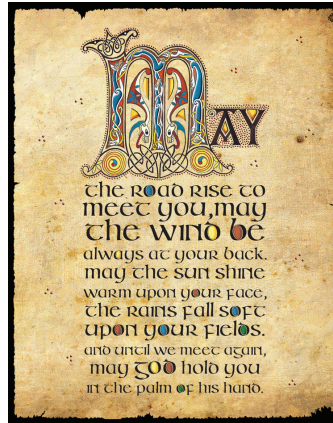 May
the road rise to
meet you, may
the wind be
always at your back.
may the sun shine
warm upon your face,
the rains fall soft
upon your fields.
and until we meet again,
may god hold you
in the palm of his hand.